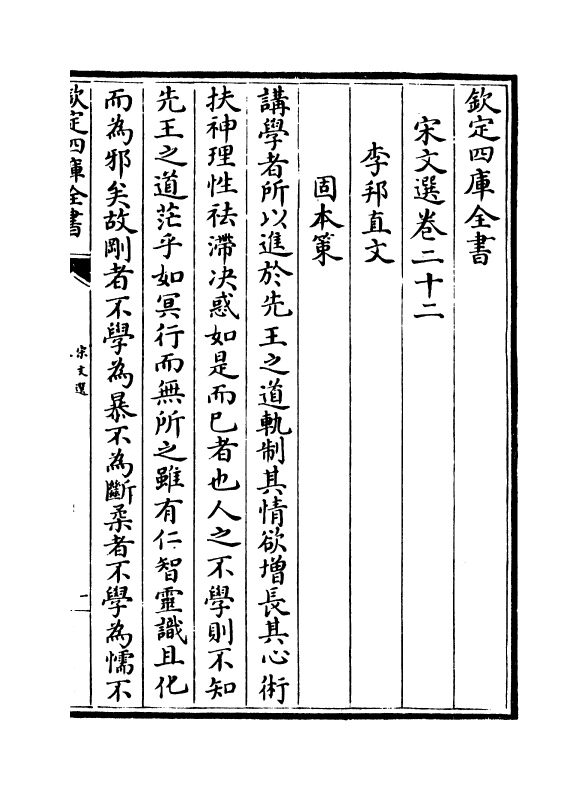 欽定四庫全書
宋文選卷二十二
李邦直文
固本策
講學者所以進於先王之道軌制其情欲增長其心術
扶神理性祛滯決惑如是而已者也人之不學則不知
先王之道茫乎如冥行而無所之雖有仁智靈識且化
而為邪矣故剛者不學為暴不為斷柔者不學為懦不
欽定四庫全書
宋文選